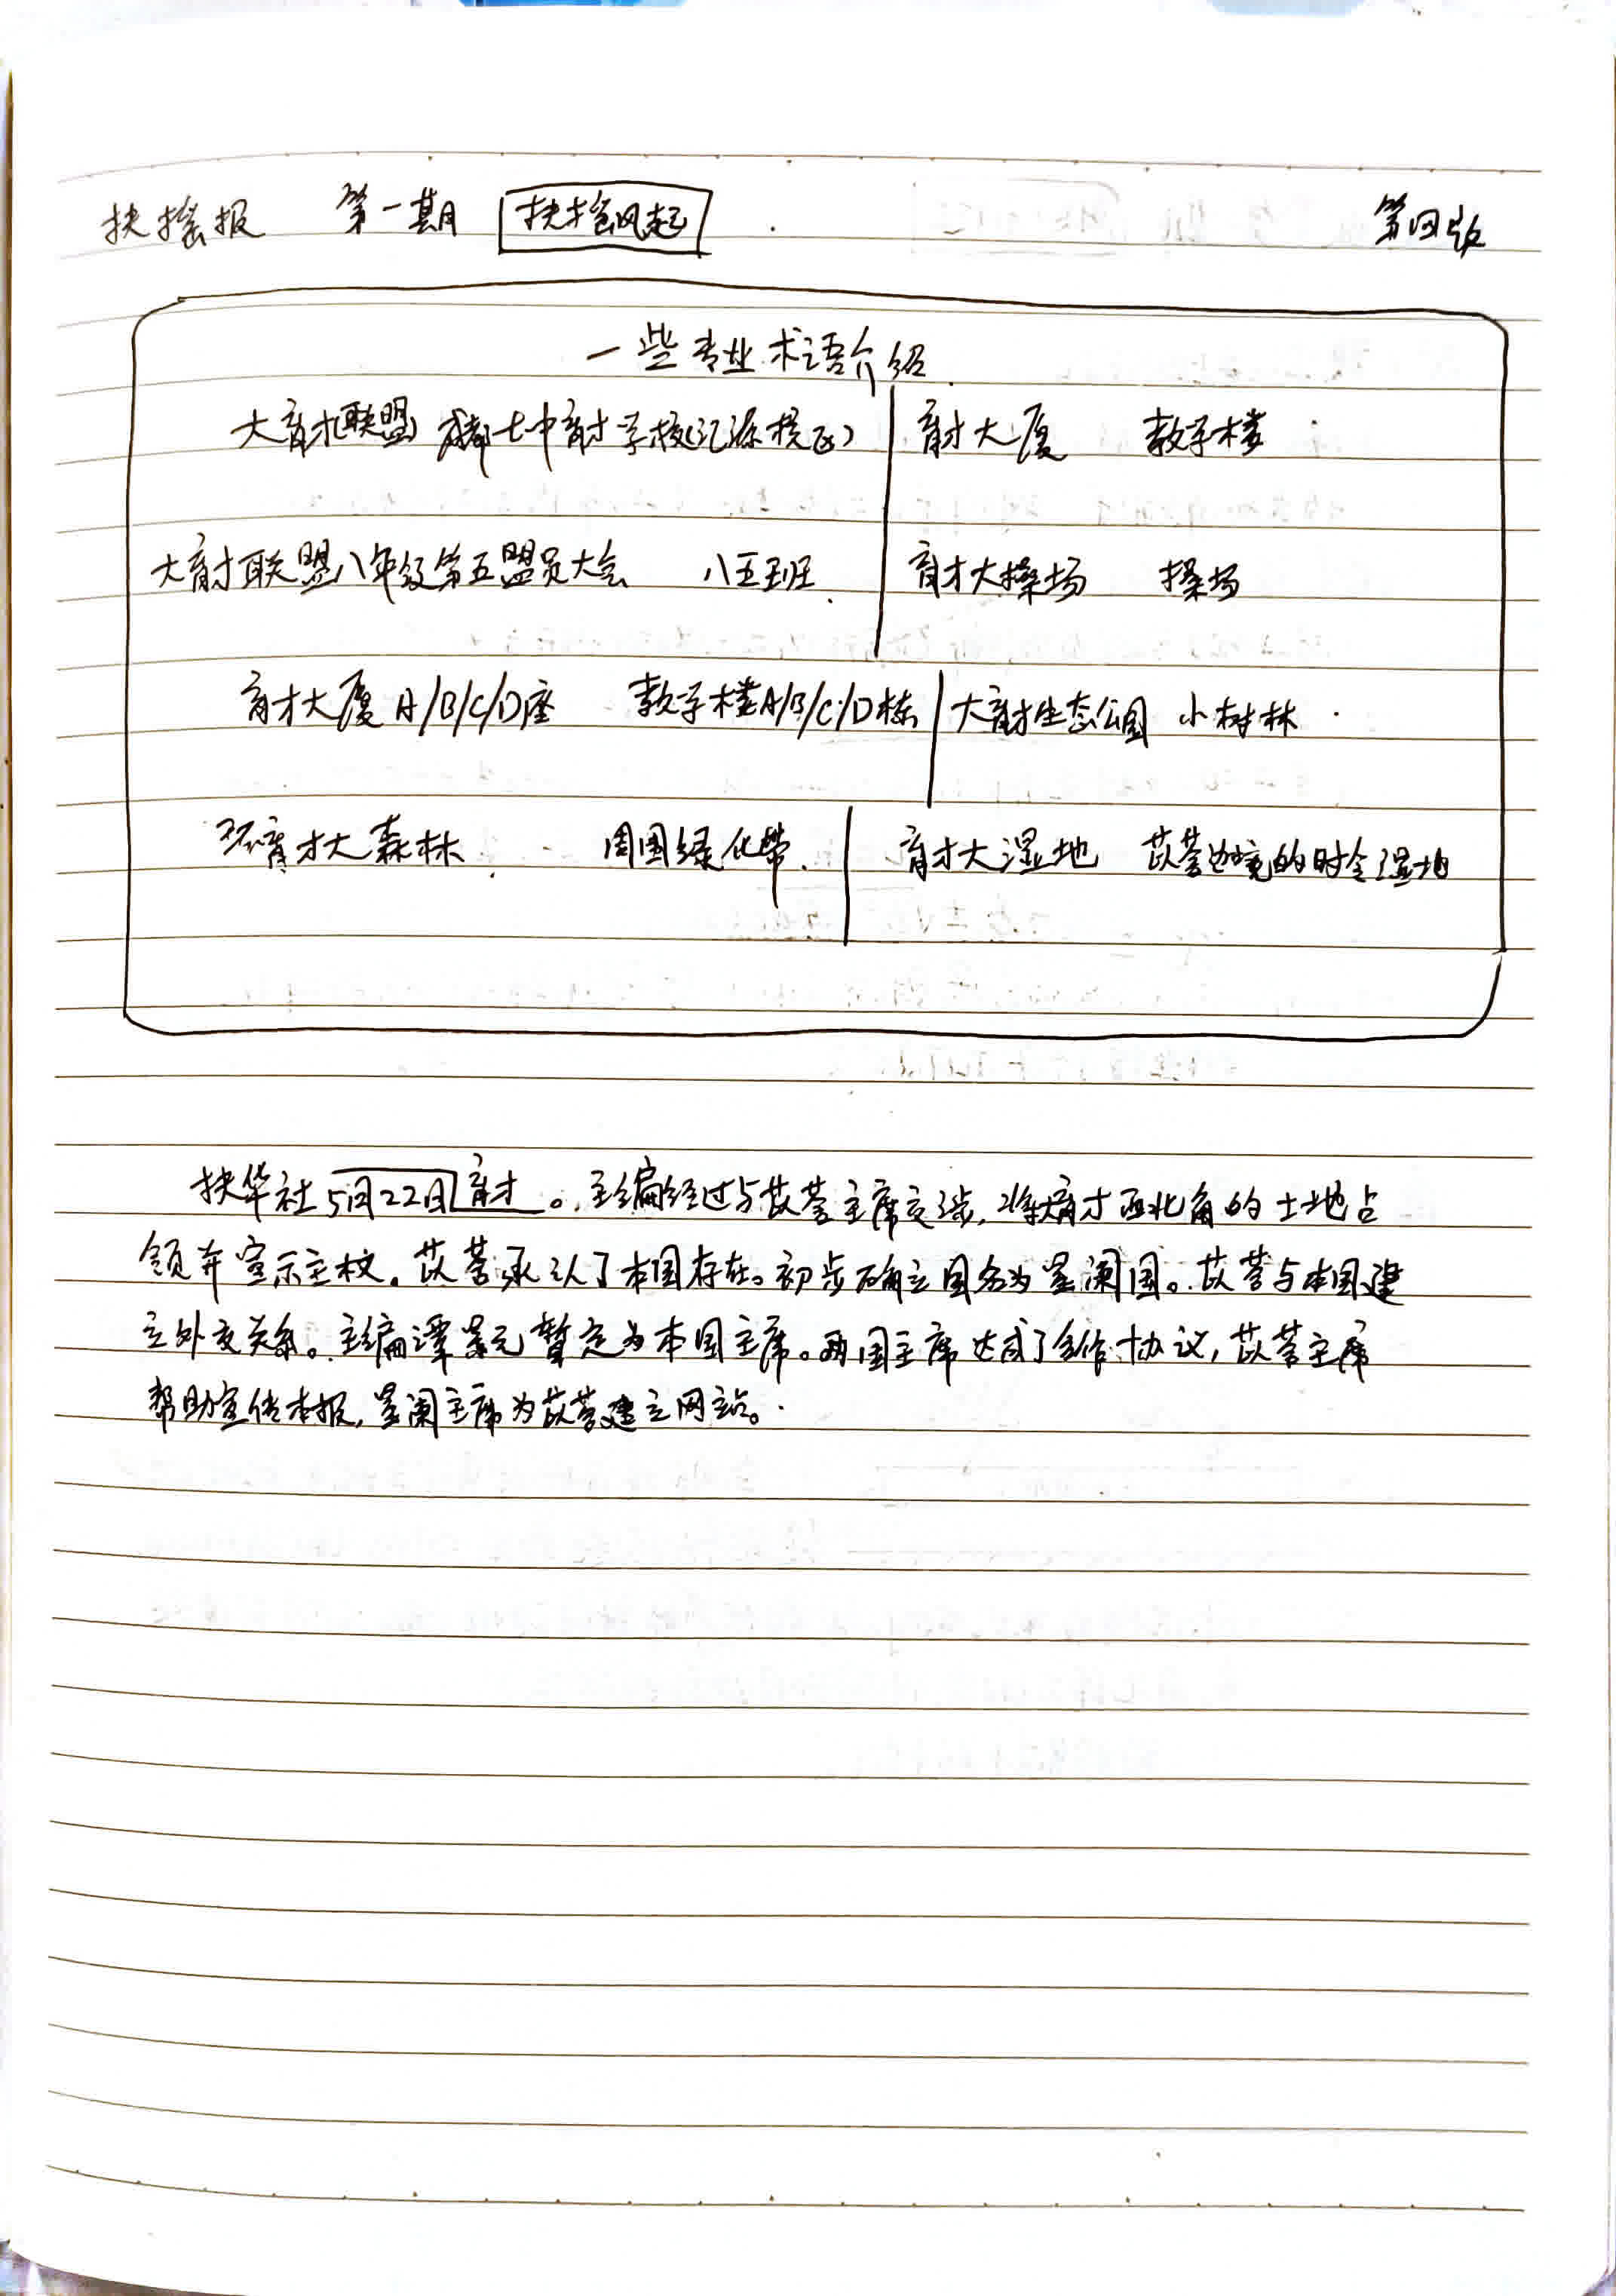 扶摇报 第一期 扶摇风起 第四版
一些专业术语介绍
大育才联盟 成都七中育才学校(汇源校区) 育才大厦 教学楼
大育才联盟八年级第五盟员大会 八五班 育才大操场 操场
育才大厦A/B/C/D座 教学楼A/B/C/D栋 大育才生态公园 小树林
环育才大森林 周围绿化带 育才大湿地 苡营边境的时令湿地
扶华社5月22日育才。主编经过与苡营主席交涉,将育才西北角的土地占
领并宣示主权。苡营承认了本国存在。初步确立国名为星阑国。苡营与本国建
立外交关系。主编谭元暂定为本国主席。两国主席达成了合作协议,苡营主席
帮助宣传本报,星阑主席为苡营建立网站。